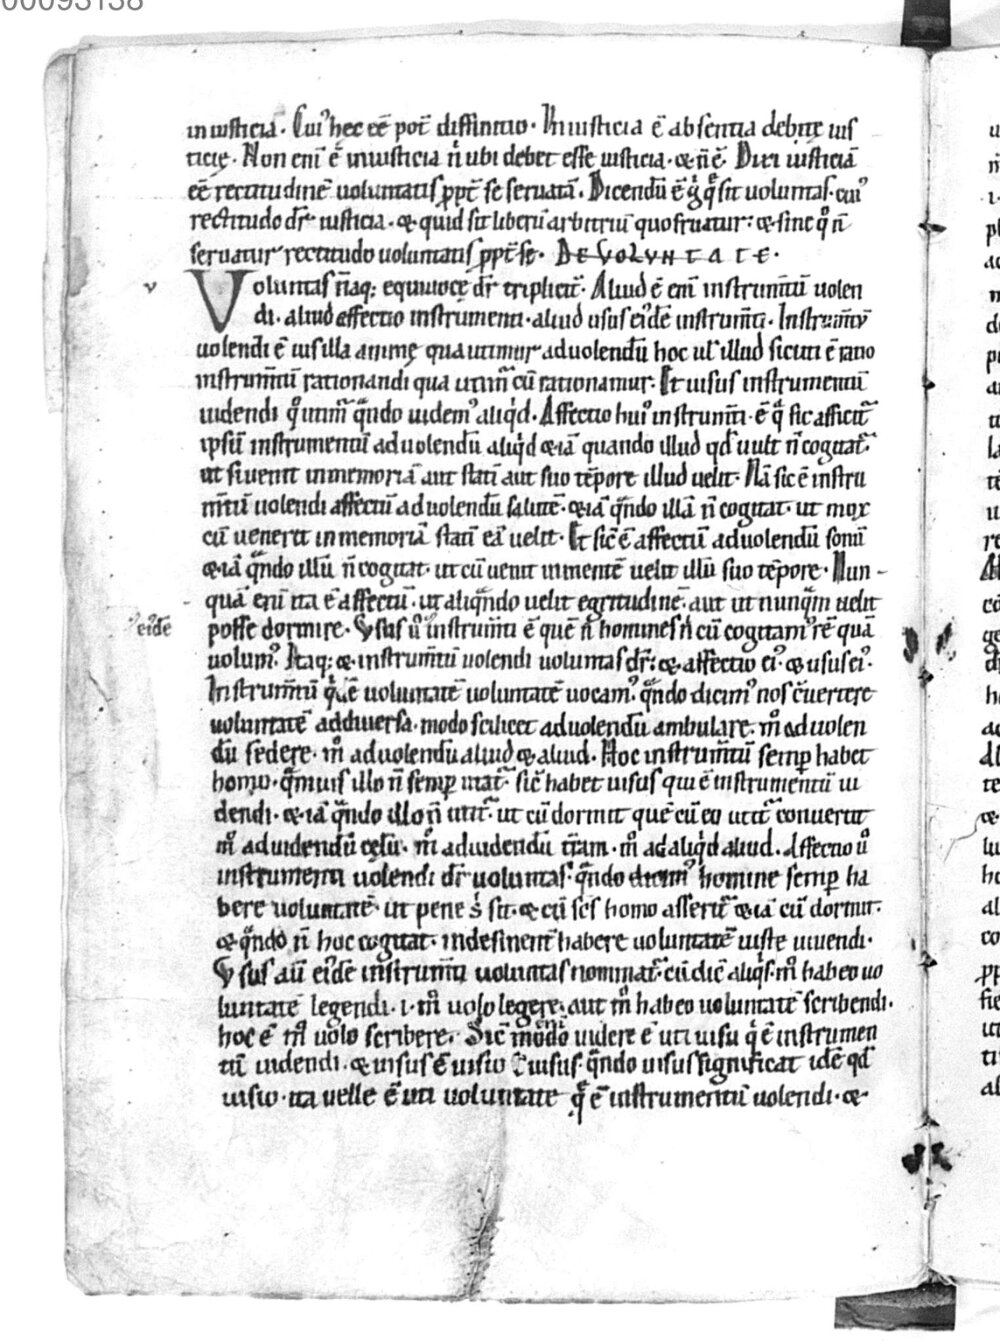 00093138
iniusticia. Cui' hec eē pot̄ diffinitio. Iniusticia ē absentia debitę ius
ticię. Non eni ē iniusticia n̄ ubi debet esse iusticia. & n̄ ē. Dixi iusticiā
eē rectitudinē uoluntatis ꝓpt̄ se seruatā. Dicendū ē g̊ qͥd sit uoluntas. cui'
rectitudo dr̄ iusticia. & quid sit liberū arbitriū quo fruatur: & sine qͦ n̄
seruatur rectitudo uoluntatis ꝓpt̄ se. DE VOLVNTATE.
v
Voluntas n̄aq; equiuocę dr̄ triplicit̄. Aliud ē eni instrumtū uolen
di. aliud affectio instrumenti. aliud usus ei'dē instrumti. Instrumtū
uolendi ē uis illa animę qua utimur ad uolendū hoc ul' illud sicuti ē ratio
instrumtū rationandi qua utim̄ cū rationamur. Et uisus instrumentū
uidendi qͦ utim̄ qͣndo uidem' aliqͥd. Affectio hui' instrumti. ē qͣ sic afficit̄
ipsū instrumentū ad uolendū aliqͥd & iā quando illud qd̄ uult n̄ cogitat.
ut si uenit in memoriā aut statī aut suo tēpore illud uelit. Nā sic ē instru
mtū uolendi affectū ad uolendū salutē. & iā qͣndo illā n̄ cogitat. ut mox
cū uenerit in memoriā statī eā uelit. Et sic̄ ē affectū ad uolendū somū
& iā qͣndo illū n̄ cogitat. ut cū uenit in mentē uelit illū suo tēpore. Nun-
quā eni ita ē affectū. ut aliqͣndo uelit egritudinē. aut ut nunqͣm uelit
ei'dē
posse dormire. Vsus ū instrumti ē quē n̄ habemus n̄ cū cogitam' rē quā
uolum'. Itaq; & instrumtū uolendi uoluntas dr̄: & affectio ei'. & usus ei'.
Instrumtū qͥdē uoluntatē uocam'. qͣndo dicim' nos c̄uertere
uoluntatē ad diuersa. modo scilicet ad uolendū ambulare. mͦ ad uolen
dū sedere. mͦ ad uolendū aliud & aliud. Hoc instrumtū semꝑ habet
homo. qͣmuis illo n̄ semꝑ utat̄. sic̄ habet uisus qui ē instrumentū ui
dendi. & iā qͣndo illo n̄ utit̄. ut cū dormit quē cū eo utit̄ conuertit
mͦ ad uidendū cęlū. mͦ ad uidendū t̄ram. mͦ ad aliqͥd aliud. Affectio ū
instrumenti uolendi dr̄ uoluntas. qͣndo dicim' homine semꝑ ha
bere uoluntatē. ut bene s' sit. & cū sc̄s homo asserit̄ & iā cū dormit.
& qͣndo n̄ hoc cogitat. indesinent̄ habere uoluntatē iuste uiuendi.
Vsus aū ei'dē instrumti uoluntas nominat̄. cū dic̄ aliqͥs. mͦ habeo uo
luntatē legendi. .i. mͦ uolo legere. aut mͦ habeo uoluntatē scribendi.
hoc ē mͦ uolo scribere. Sic̄ modo uidere ē uti uisu qͥ ē instrumen
tū uidendi. & uisus ē uisio uisus. qͣndo uisus significat idē qd̄
uisio. ita uelle ē uti uoluntate qͣ ē instrumentū uolendi. &